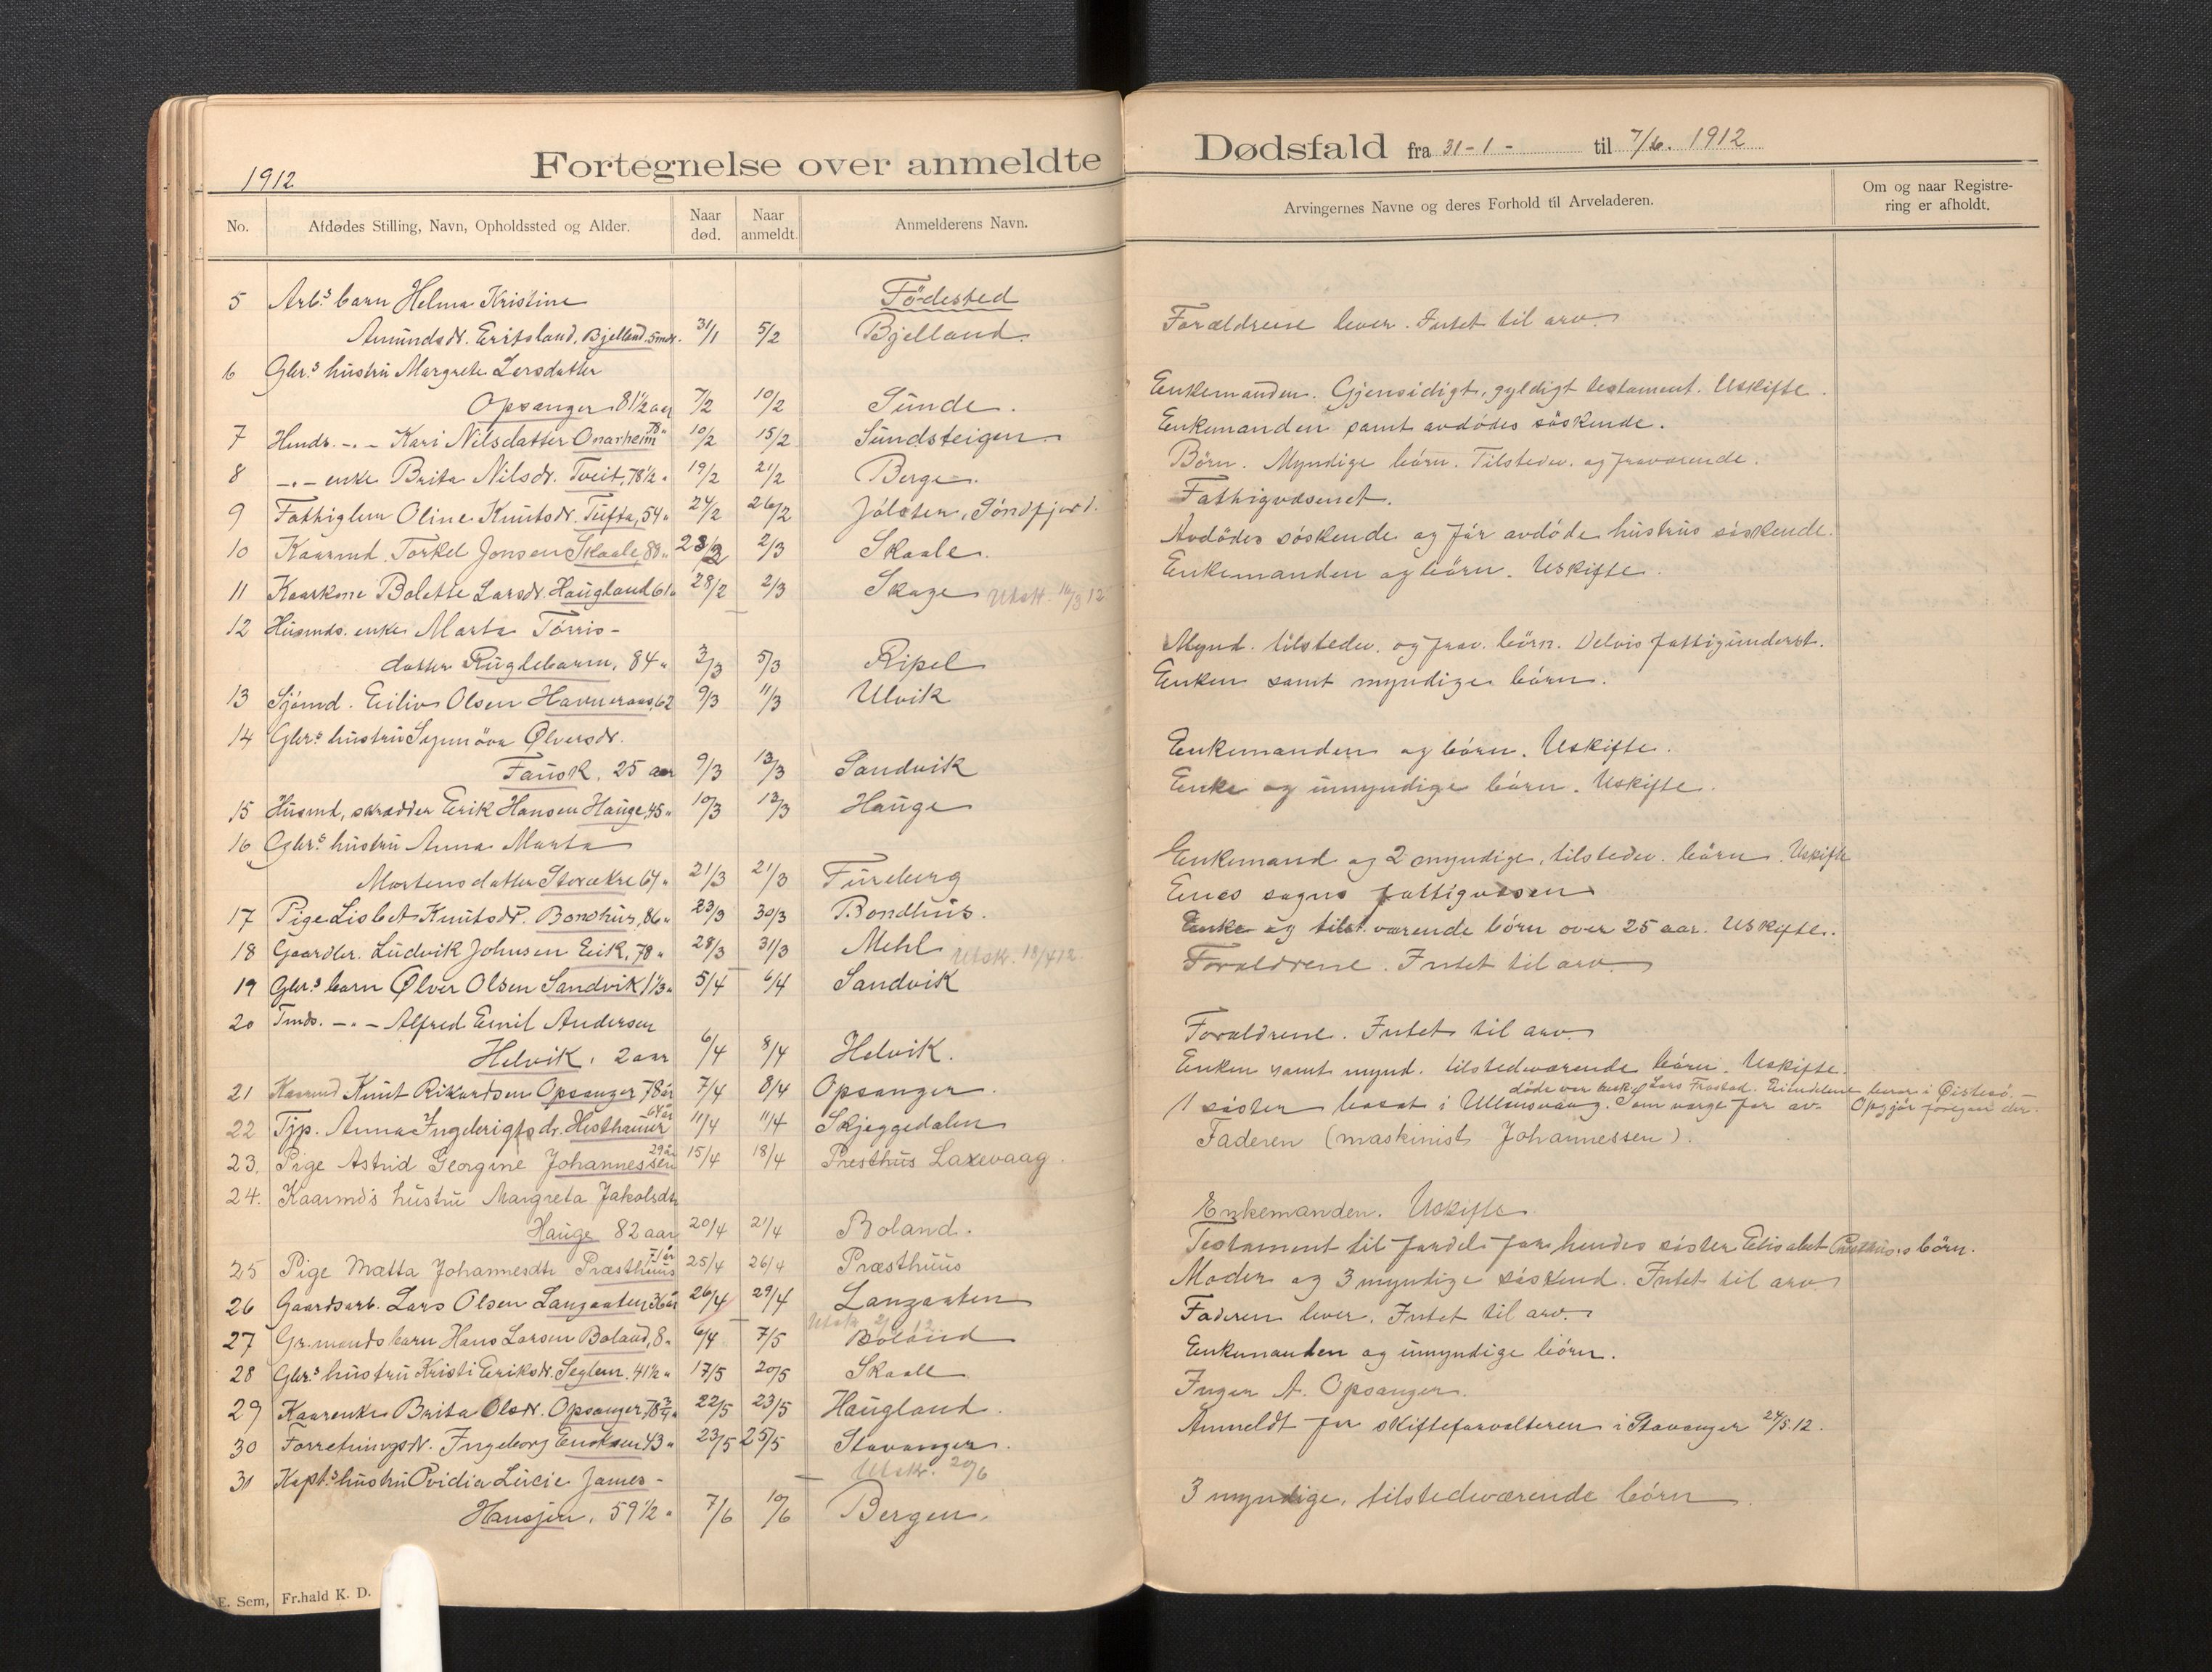 1912
Fortegnelse over anmeldte Dødsfald fra 31-1- til 7/6. 1912
No. Afdødes Stilling, Navn, Opholdssted og Alder. Naar død. Naar anmeldt. Anmelderens Navn. Arvingernes Navne og deres Forhold til Arveladeren. Om og naar Registrering er afholdt.
5 Arb.s barn Helma Kristine Födested
Amundsdr. Eritsland, Bjelland 5 mdr. 31/1 5/2 Bjelland. Forældrene lever. Intet til arv.
6 Gbr.s hustru Margrete Larsdatter
Opsanger 81½ aar 7/2 10/2 Sunde. Enkemanden. Gjensidigt, gyldigt testament. Uskifte.
7 Husmds. -"- Kari Nilsdatter Onarheim 78" 10/2 15/2 Sundsteigen Enkemanden samt avdödes söskende.
8 -"- enke Brita Nilsdr. Tveit, 78½ " 19/2 21/2 Berge. Börn. Myndige börn. Tilstedev. og fraværende.
9 Fattiglem Oline Knutsdr. Tufta, 54 " 24/2 26/2 Jölster, Söndfjord. Fattigvæsenet.
10 Kaarmd. Torkel Jonsen Skaale, 88 " 28/2 2/3 Skaale. Avdödes söskende og för avdöde hustrus söskende.
11 Kaarkone Bolette Larsdr. Haugland 61 " 28/2 2/3 Skage Utskr. 16/3 12 Enkemanden og börn. Uskifte.
12 Husmds. enke Marta Törris-
datter Ruglebarm, 84 " 3/3 5/3 Ripel Mynd. tilstedev. og frav. börn. Delvis fattigunderst.
13 Sjömd. Eiliv Olsen Havneraas, 62 9/3 11/3 Ulvik Enken samt myndige börn.
14 Gbr.s hustru Synnöva Ølversdr.
Fausk, 25 aar 9/3 13/3 Sandvik Enkemanden og börn. Uskifte.
15 Husmd, skrædder Erik Hansen Hauge, 45 " 10/3 13/3 Hauge Enke og umyndige börn. Uskifte.
16 Gbr.s hustru Anna Marta
Mortensdatter Storækre 67 " 21/3 21/3 Fureberg Enkemand og 2 myndige, tilstedev. börn. Uskifte
17 Pige Lisbet Knutsdr. Bondhus, 86 " 23/3 30/3 Bondhus. Enes sogns fattigvæsen
18 Gaardbr. Ludvik Johnsen Eik, 78 " 28/3 31/3 Mehl Utskr. 13/4 12 Enke og tilst. værende börn over 25 aar. Uskifte.
19 Gbr.s barn Ølver Olsen Sandvik 1⅓ " 5/4 6/4 Sandvik Forældrene. Intet til arv.
20 Tmds. -"- Alfred Emil Andersen
Helvik, 2 aar 6/4 8/4 Helvik. Forældrene. Intet til arv.
21 Kaarmd Knut Rikardsen Opsanger 78 år 7/4 8/4 Opsanger. Enken samt mynd. tilstedeværende börn. Uskifte.
22 Tjp. Anna Ingebrigtsdr. Hesthamar 64 år 11/4 11/4 Skjeggedalen 1 söster bosat i Ullensvang. Som værge for av- döde var Lars Frostad. Eiendelene beror i Øistesö. Opgjör foregaar der.
23. Pige Astrid Georgine Johannessen 29 år 15/4 18/4 Presthus Laxevaag. Faderen (maskinist Johannessen).
24. Kaarmds hustru Margreta Jakobsdtr
Hauge 82 aar 20/4 21/4 Boland. Enkemanden. Uskifte
25 Pige Mætta Johannesdtr Præsthuus 71 år 25/4 26/4 Præsthuus Testament til fordel for hendes söster Elisabet Presthus's börn.
26 Gaardsarb. Lars Olsen Langaaten 36 år 26/4 29/4 Langaaten Moder og 3 myndige söskend. Intet til arv.
27 Gr.mands barn Hans Larsen Boland, 8 " 6/4 7/5 Boland Faderen lever. Intet til arv.
28 Gbr.s hustru Kristi Eriksdr. Seglem, 41½ " 17/5 20/5 Skaale Enkemanden og umyndige börn.
29 Kaarenke Brita Olsdr. Opsanger 78¾ " 22/5 23/5 Haugland. Inger A. Opsanger.
30 Forretningsdr. Ingeborg Eriksen 43 " 23/5 25/5 Stavanger. Anmeldt for skifteforvalteren i Stavanger 24/5.12.
31 Kapt.s hustru Ovidia Lucie James- Utskr. 20/6
Hansen, 59½ " 7/6 10/6 Bergen. 3 myndige, tilstedeværende börn.
E. Sem, Fr.hald K. D.